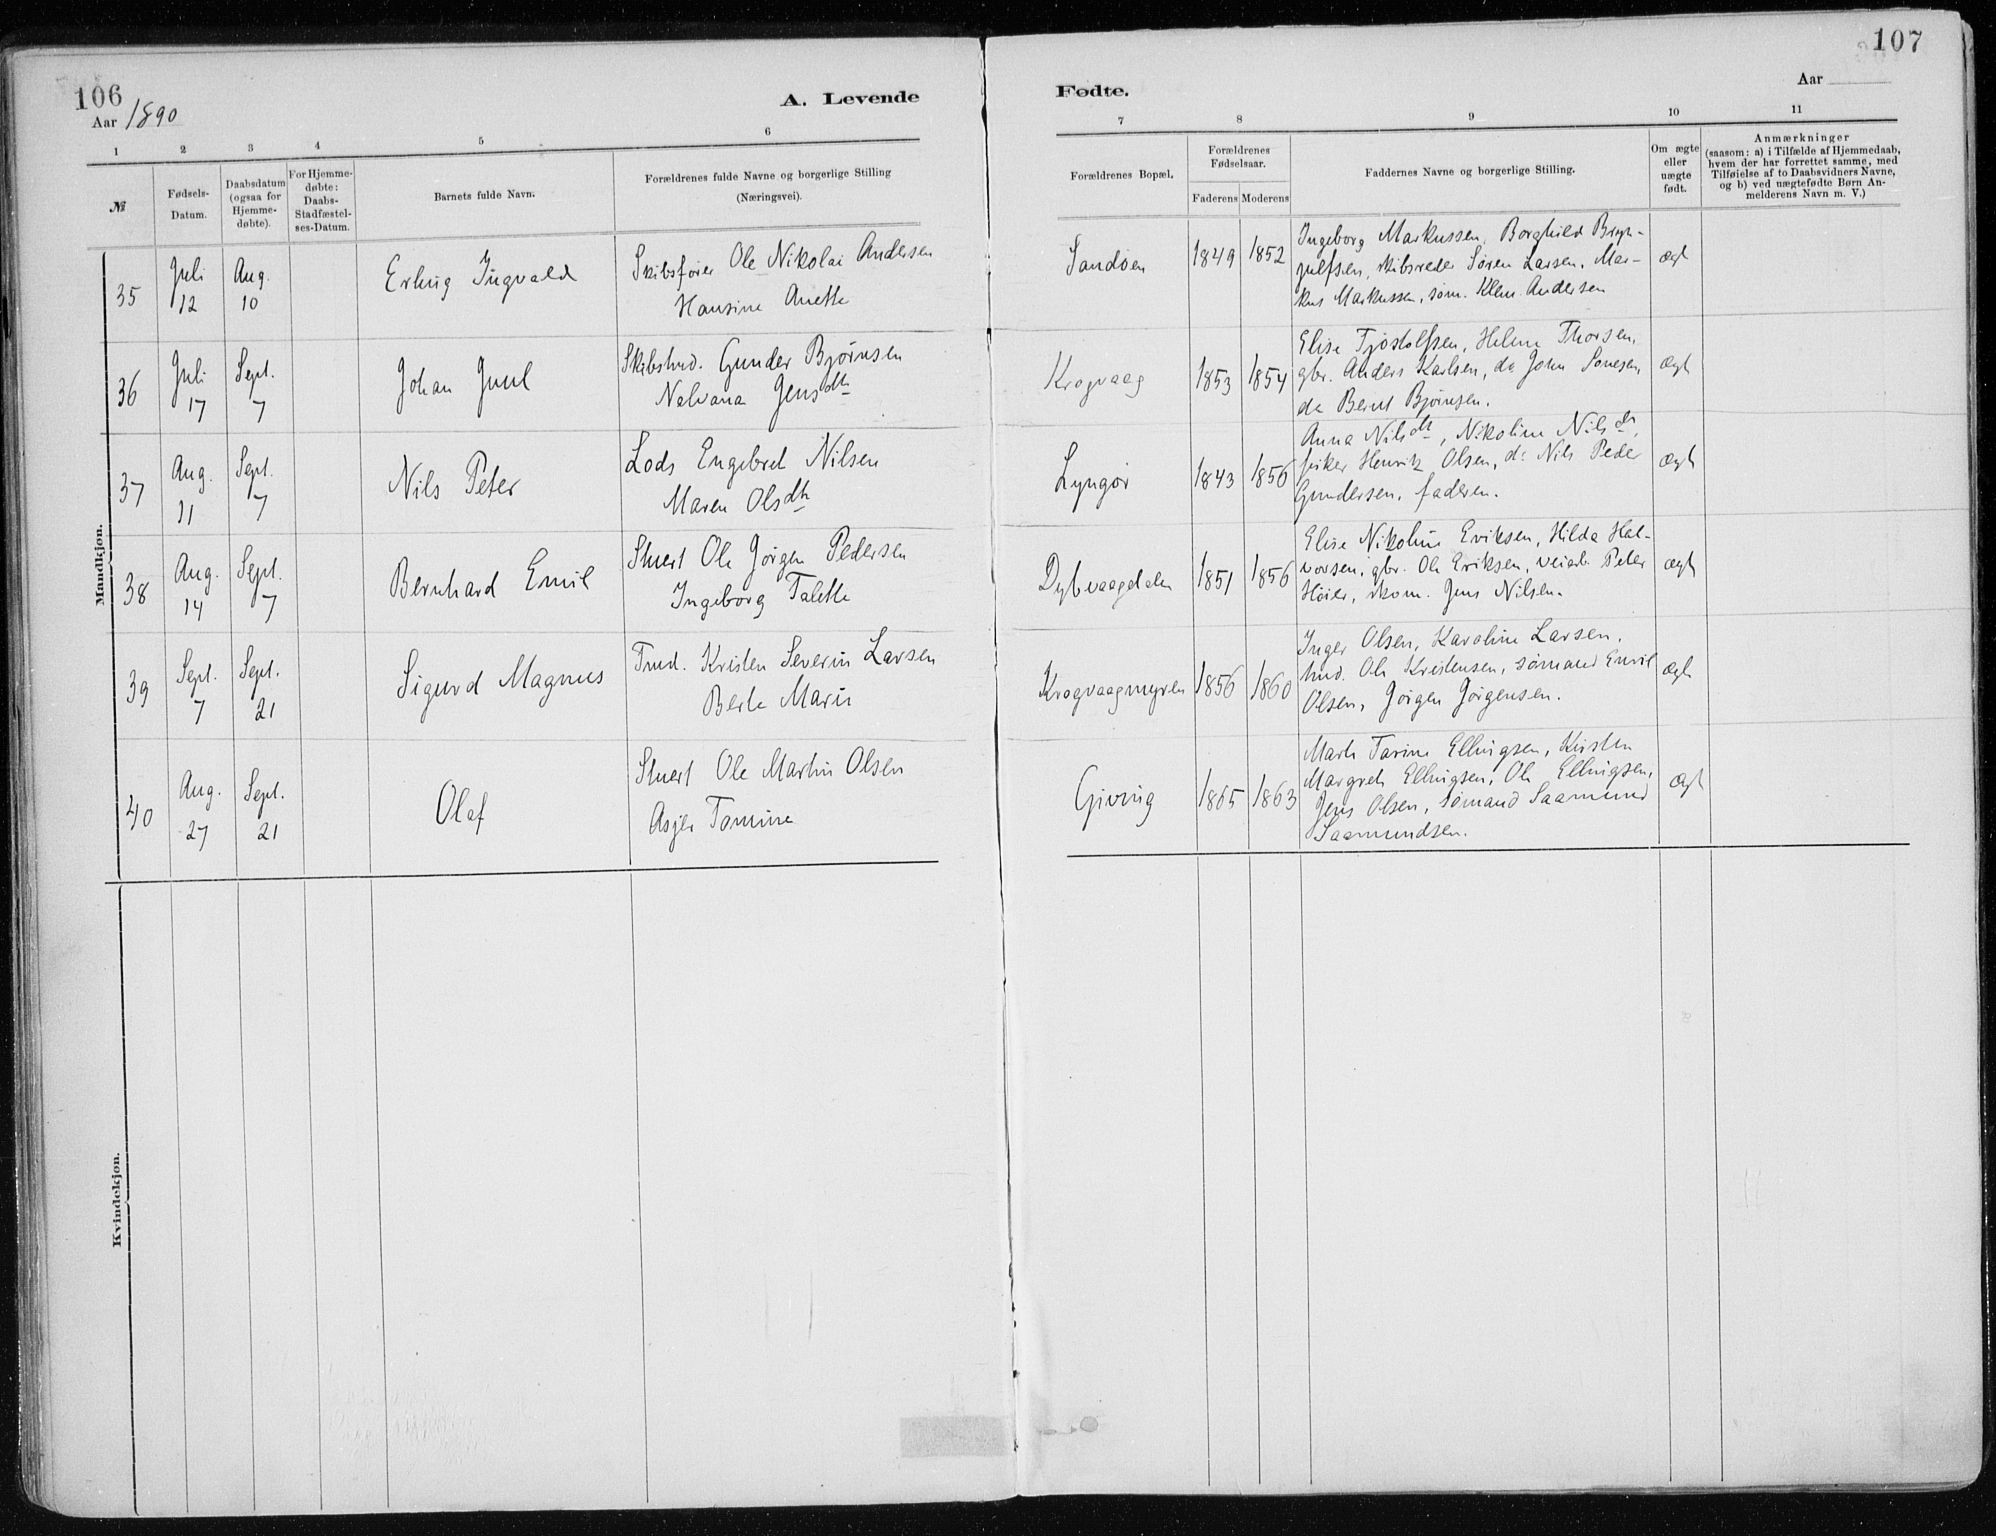 106
Aar 1890
A. Levende
1 2 3 4 5 6
№
Fødsels-Datum.
Daabsdatum (ogsaa for Hjemme-døbte).
For Hjemme-døbte: Daabs-Stadfæstel-ses-Datum.
Barnets fulde Navn.
Forældrenes fulde Navne og borgerlige Stilling
(Næringsvei).
Mandkjøn.
35 Juli 12 Aug. 10 Erling Ingvald
Skibsfører Ole Nikolai Andersen
Hansine Anette
36 Juli 17 Sept. 7 Johan Juul
Skibstmd. Gunder Bjørnsen
Nalvana Jensdtr
37 Aug. 11 Sept. 7 Nils Peter
Lods Engebret Nilsen
Maren Olsdtr
38 Aug. 14 Sept. 7 Bernhard Emil
Stuert Ole Jørgen Pedersen
Ingeborg Talette
39 Sept. 7 Sept. 21 Sigurd Magnus
Tmd. Kristen Severin Larsen
Berte Marie
40 Aug. 27 Sept. 21 Olaf
Stuert Ole Martin Olsen
Asjer Tomine
Kvindekjøn.
107
Aar
Fødte.
7 8 9 10 11
Forældrenes Bopæl.
Forældrenes Fødselsaar.
Faderens Moderens
Faddernes Navne og borgerlige Stilling.
Om ægte eller uægte født.
Anmærkninger
(saasom: a) i Tilfælde af Hjemmedaab,
hvem der har forrettet samme, med
Tilføielse af to Daabsvidners Navne,
og b) ved uægtefødte Børn An-
melderens Navn m. V.)
Sandøen 1849 1852
Ingeborg Markussen, Borghild Bryn-
julfsen, skibsreder Søren Larsen, Mar-
kus Markussen, søm. Klem. Andersen
ægt
Krogvaag 1853 1854
Elise Tjøstolfsen, Helene Thorsen,
gbr. Anders Karlsen, do John Sonesen,
do Bernt Bjørnsen.
ægt
Lyngør 1843 1856
Anna Nilsdtr, Nikoline Nilsdtr,
fisker Henrik Olsen, do Nils Peder
Gundersen, faderen.
ægt
Dybvaagdalen 1851 1856
Elise Nikoline Eriksen, Hilda Hal-
vorsen, gbr. Ole Eriksen, veiarb. Peter
Høier, skom. Jens Nilsen.
ægt
Krogvaagmyren 1856 1860
Inger Olsen, Karoline Larsen,
tmd. Ole Kristensen, sømand Emil
Olsen, Jørgen Jørgensen.
ægt
Giving 1865 1863
Marte Tarine Ellingsen, Kirsten
Margrete Ellingsen, Ole Ellingsen,
Jens Olsen, sømand Saamund
Saamundsen.
ægt